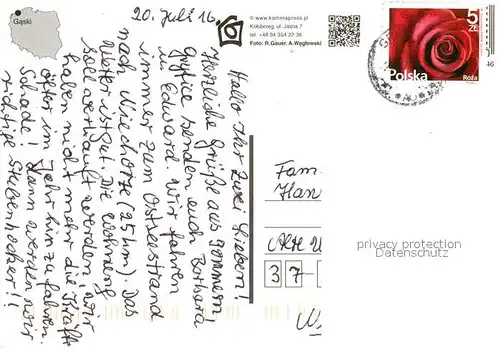 Gąski
20. Juli 16
© www.kamerapress.pl
Kołobrzeg, ul. Jasna 7
tel. +48 94 354 22 36
Foto: R.Gauer, A.Węgłowski
5
ZŁ
Polska
Róża
46
Hallo Ihr zwei Lieben!
Herzliche Grüße aus Pommern!
Gryfice senden euch Barbara
u. Edward. Wir fahren
immer zum Ostseestrand
nach Niechorze (25 km). Das
Wetter ist gut. Die Wohnung
soll verkauft werden, wir
haben nicht mehr die Kräfte
öfter im Jahr hin zu fahren.
Schade! Dann werden wir
richtige Stubenhocker!!
Fam.
Han
Alte
37-
W
privacy protection
Datenschutz